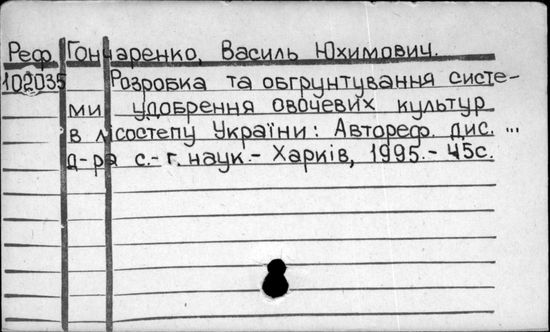 Реф Гончаренко, Василь Юхимович.
102035 Розробка та обгрунтування систе-
ми удобрення овочевих культур
в лісостепу України: Автореф. дис. ...
д-ра с.-г. наук.- Харків, 1995.- 45с.